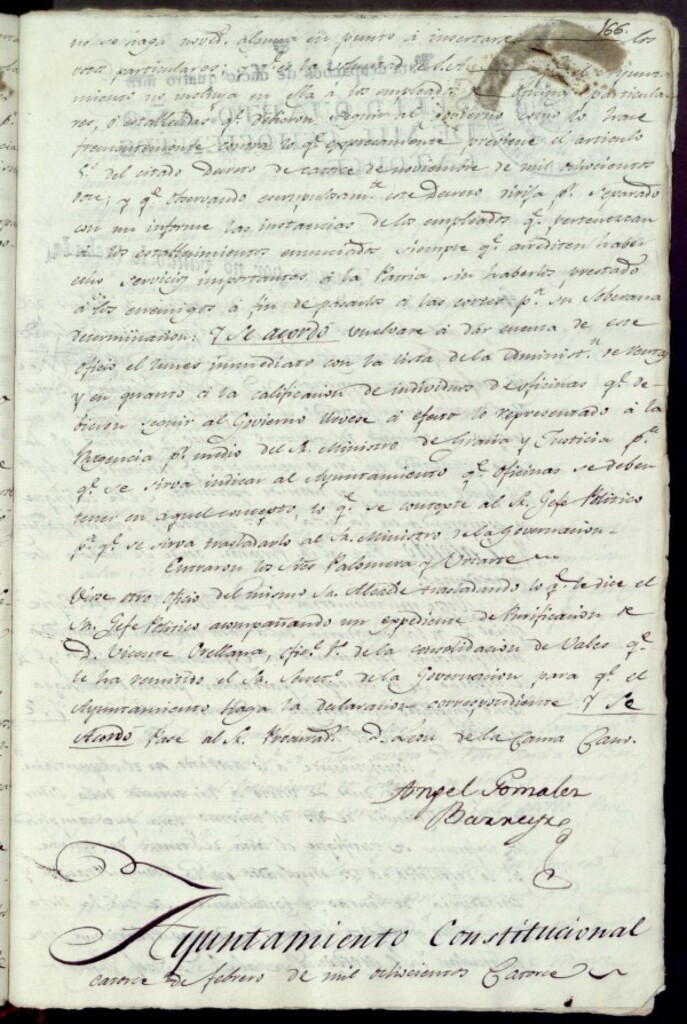 166.
no se haga noved. alguna en punto á insertar los
votos particulares; q.e es la voluntad de S. A. el Ayunta
miento no incluya en ella á los empleados de oficina particula
res, ó establecidas q.e deberon seguir al Govierno como lo hace
frequentemente contra lo q.e expresamente previene el articulo
5.º del citado Decreto de catorce de noviembre de mil ochocientos
doce; y q.e observando escrupulosam.te este Decreto dirija p.r separado
con un informe las instancias de los empleados q.e pertenezcan
á los establecimientos enunciados siempre q.e acrediten haber
echo servicios importantes á la Patria sin haberlos prestado
á los enemigos á fin de pasarlos á las cortes p.a su Soberana
determinacion: Y Se acordó vuelvase á dar cuenta de este
oficio el lunes inmediato con la lista de la Administ.n de rentas
y en quanto á la calificacion de individuos de oficinas q.e de-
bieron seguir al Govierno Uvose á efecto lo representado á la
Regencia p.r medio del S.r Ministro de Gracia y Justicia p.a
q.e se sirva indicar al Ayuntamiento q.e Oficinas se deben
tener en aquel concepto, lo q.e se conteste al S.r Gefe Politico
p.a q.e se sirva trasladarlo al S.r Ministro de la Governacion.
Entraron los S.res Palomera y Uriarte
Viose otro oficio del mismo S.r Alcalde trasladando lo q.e le dice el
S.r Gefe Politico acompañando un expediente de Purificacion de
D. Vicente Orellana, ofic.l 1.º de la consolidacion de Vales q.e
le ha remitido el S.r Secret.o de la Governacion para q.e el
Ayuntamiento haga la declaracion correspondiente. Y Se
Acordo Pase al S.r Procurad.r D. Leon de la Cama Cano.
Angel Gonzalez
Barreyro
Ayuntamiento Constitucional
catorce de febrero de mil ochocientos Catorce